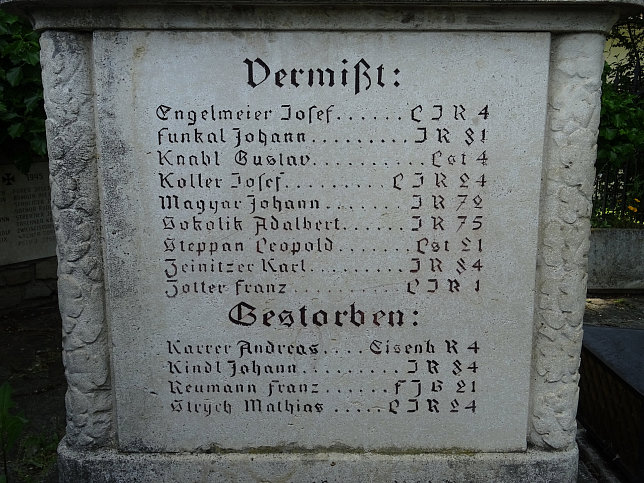 Vermißt:
Engelmeier Josef......L J R 4
Funkal Johann..........J R 81
Knabl Gustav...........Lst 4
Koller Josef..........L J R 24
Magyar Johann........J R 72
Sokolik Adalbert.......J R 75
Steppan Leopold........Lst 21
Zeinitzer Karl..........J R 84
Zotter Franz...........L J R 1
Gestorben:
Karrer Andreas....Eisenb R 4
Kindl Johann..........J R 84
Reumann Franz......F J B 21
Strÿch Mathias.....L J R 24
1945